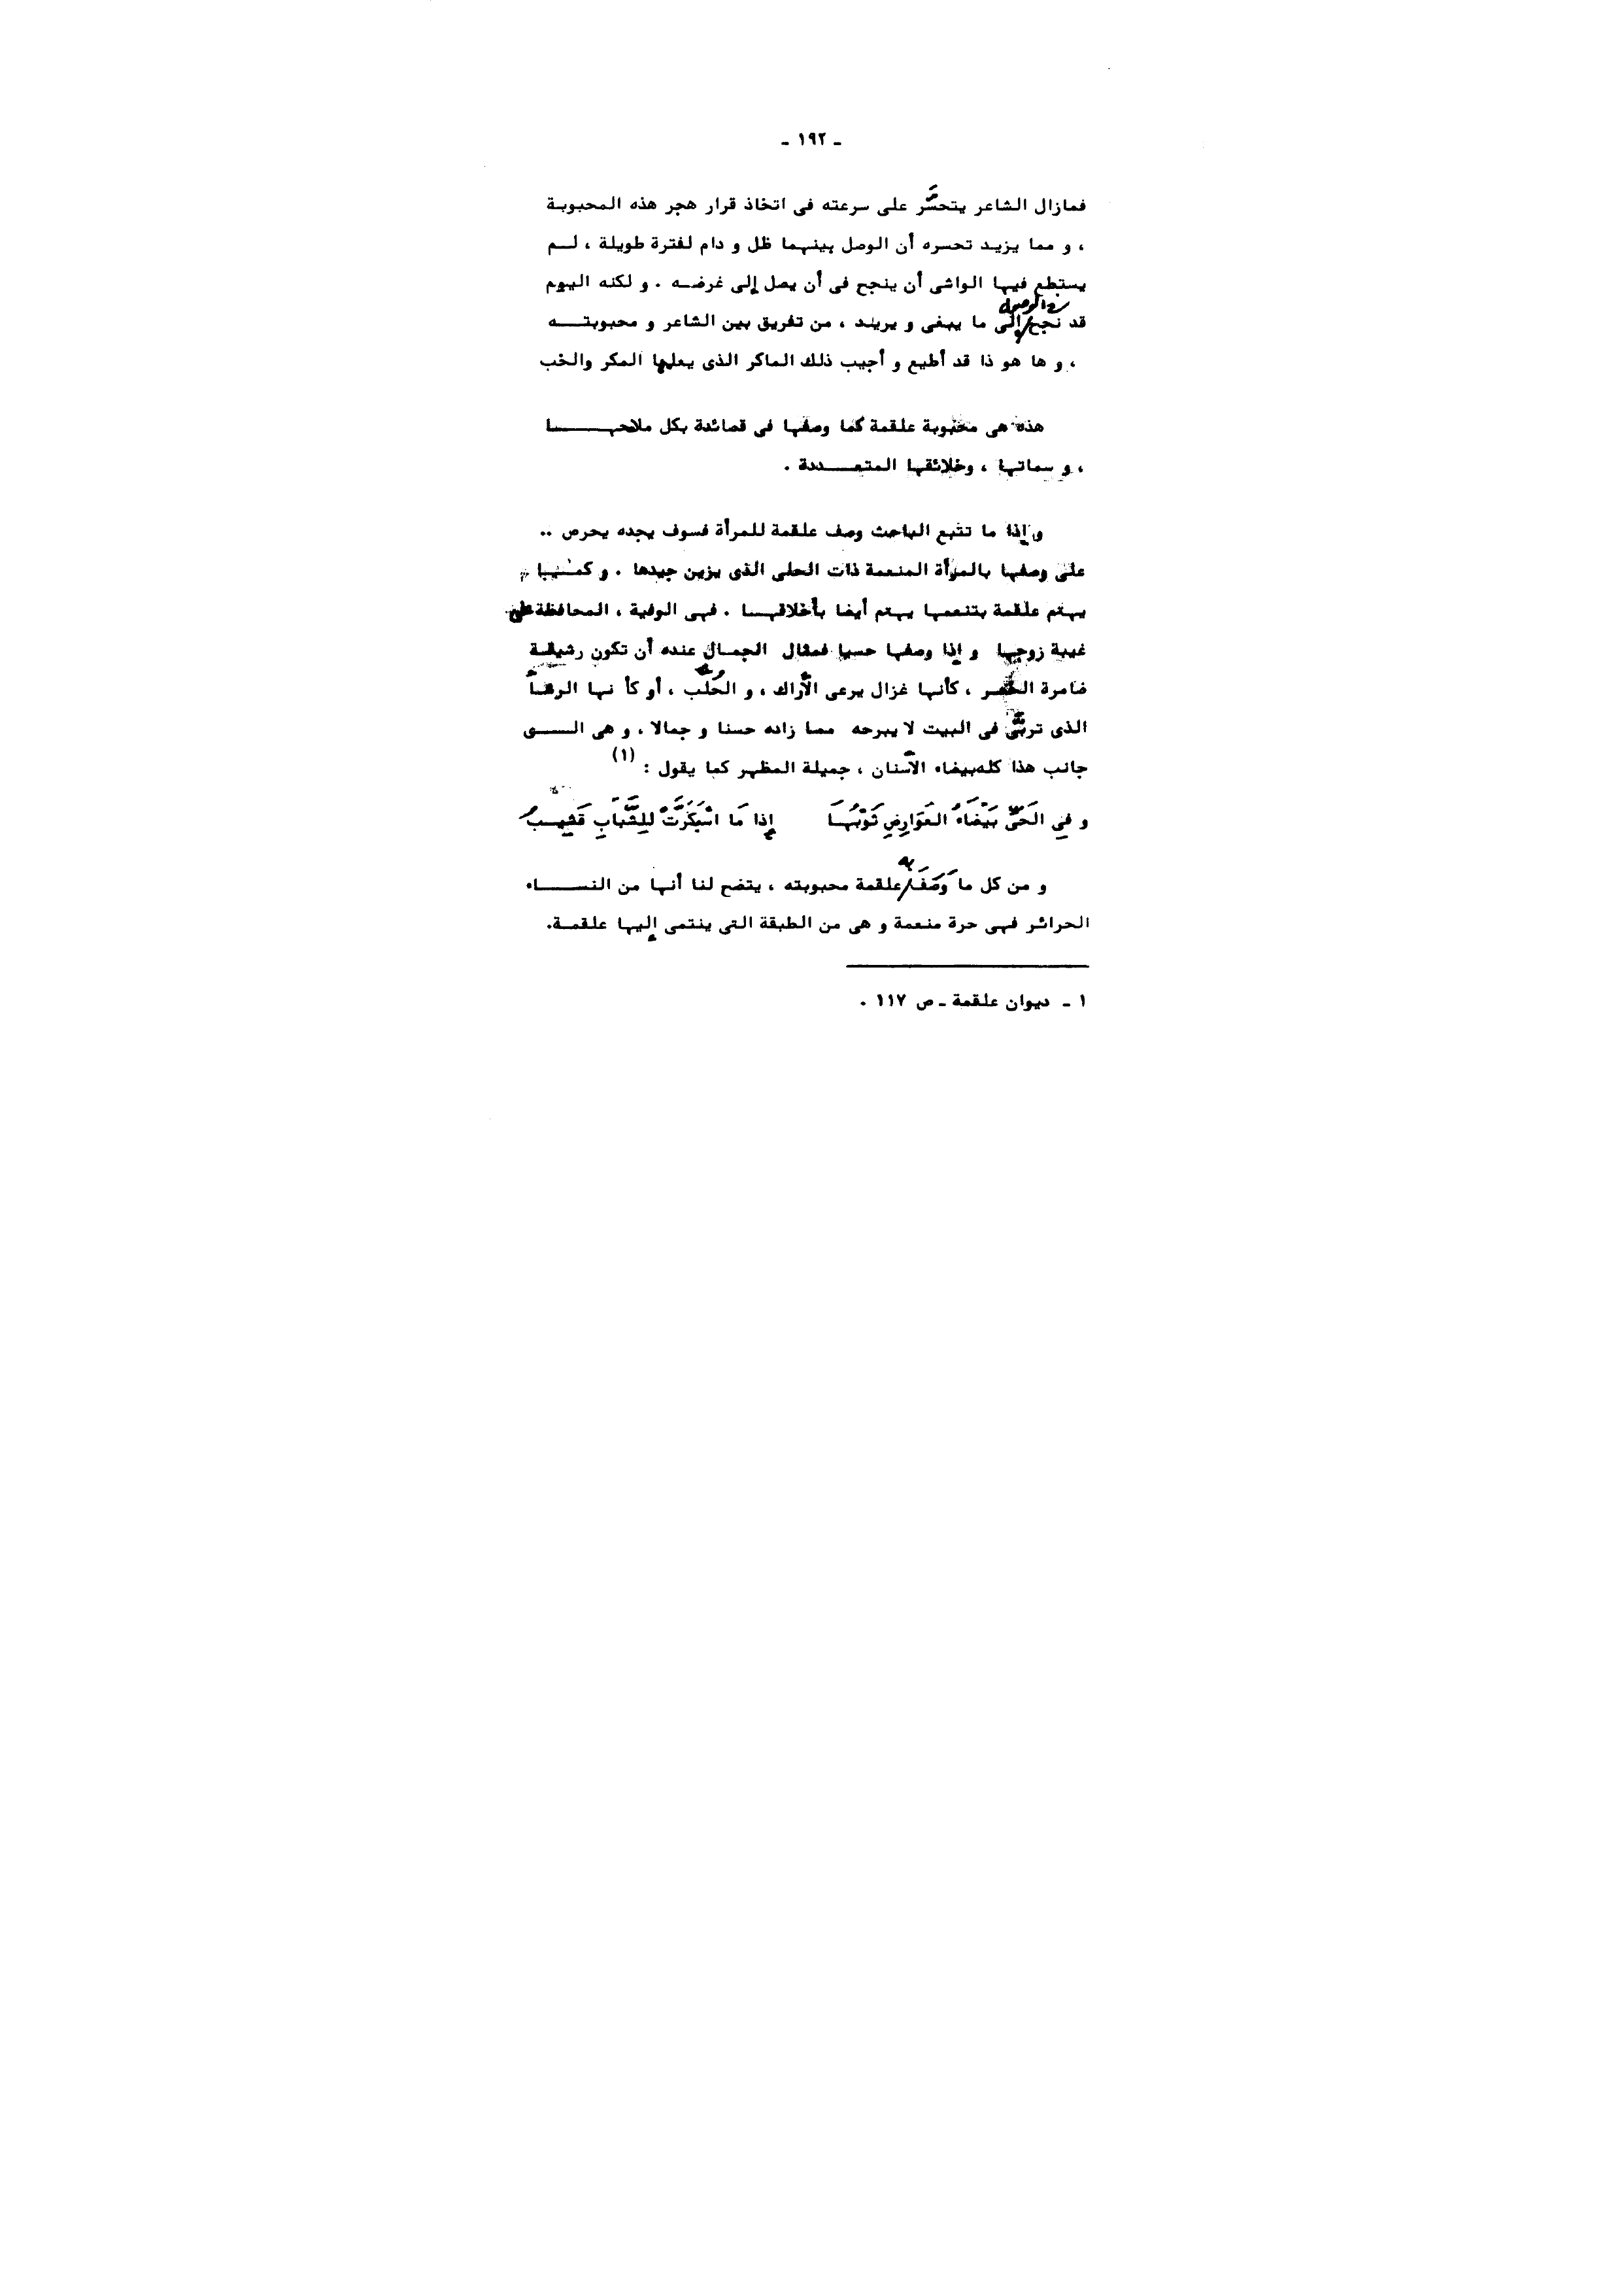 - ١٩٢ -
فمازال الشاعر يتحسَّر على سرعته فى اتخاذ قرار هجر هذه المحبوبة
، و مما يزيد تحسره أن الوصل بينهما ظل و دام لفترة طويلة ، لم
يستطع فيها الواشى أن ينجح فى أن يصل إلى غرضه . و لكنه اليوم
قد نجح فى الوصول إلى ما يبغى و يريد ، من تفريق بين الشاعر و محبوبته
، و ها هو ذا قد أطيع و أجيب ذلك الماكر الذى يعلمها المكر والخب
هذه هى محبوبة علقمة كما وصفها فى قصائدة بكل ملامحها
، و سماتها ، وخلائقها المتعددة .
و إذا ما تتبع الباحث وصف علقمة للمرأة فسوف يجده يحرص ..
على وصفها بالمرأة المنعمة ذات الحلى الذى يزين جيدها . و كما
يهتم علقمة بتنعمها يهتم أيضا بأخلاقها . فهى الوفية ، المحافظة على
غيبة زوجها و إذا وصفها حسيا فمثال الجمال عنده أن تكون رشيقة
ضامرة الخصر ، كأنها غزال يرعى الأراك ، و الحُلَّب ، أو كأ نها الرشأ
الذى تربَّى فى البيت لا يبرحه مما زاده حسنا و جمالا ، و هى الى
جانب هذا كله بيضاء الأسنان ، جميلة المظهر كما يقول : (١)
و فِي الحَيِّ بَيْضَاءُ العَوَارِضِ ثَوْبُهَا إِذا مَا اسْبَكَرَّتْ لِلِشَّبَابِ قَشِيبُ
و من كل ما وَصَفَ به علقمة محبوبته ، يتضح لنا أنها من النساء
الحرائر فهى حرة منعمة و هى من الطبقة التى ينتمى إليها علقمة.
١ - ديوان علقمة - ص ١١٧ .